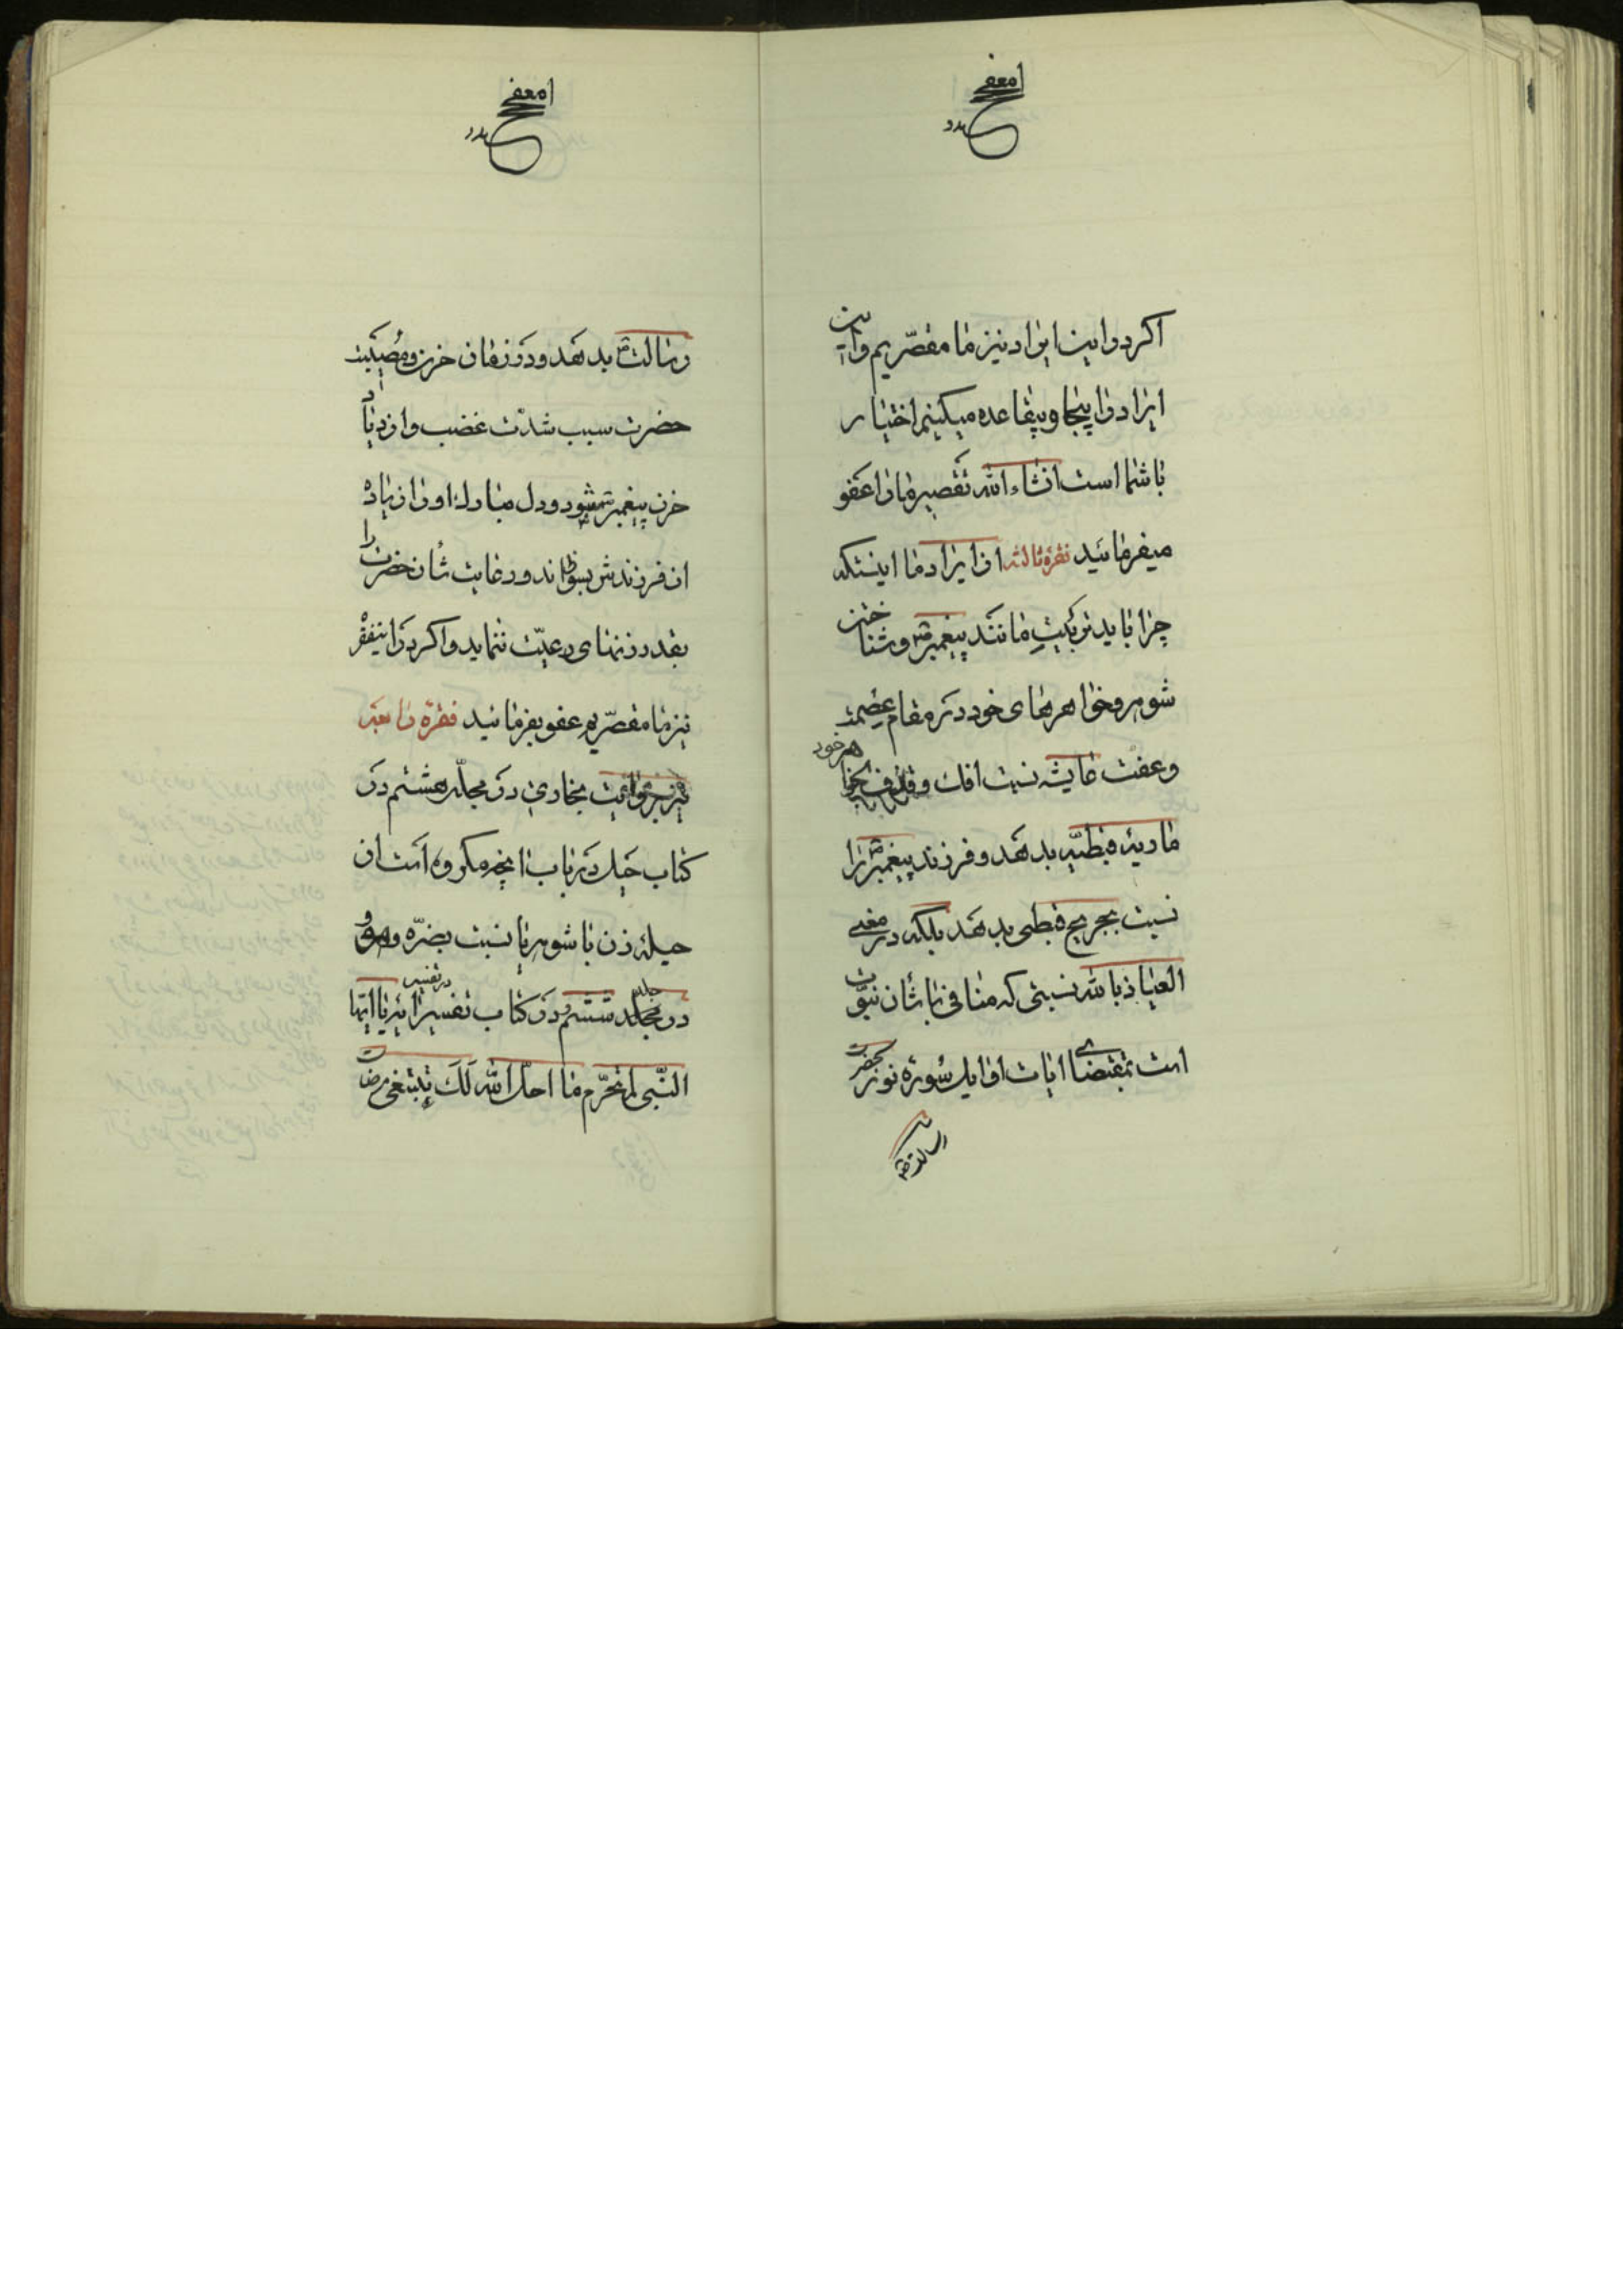 اکر در این ایراد نیز ما مقصّریم و این
ایراد را بیجا و بیقاعده میکنیم اختیار
با شما است انشاء الله تقصیر ما را عفو
میفرمائید فقرهٔ ثالثه از ایراد ما اینستکه
چرا باید تربیت مانند پیغمبر و
شوهر و خواهرهای خود در مقام عصمت
و عفت عایشه نسبت افک و قذف بخواهر خود
ماریهٔ قبطیّه بدهد و فرزند پیغمبر را
نسبت بجریح قبطی بدهد بلکه در معنی
العیاذ بالله نسبتی که منافی با شأن نبوّت
است بمقتضای ایات اوایل سورهٔ نور بحضرت
رسالت بدهد و در زمان حزن و مصیبت
حضرت سبب شدّت غضب و ازدیاد
حزن پیغمبر بشود و دل مبارک او را زیاده
از فرزندش بسوزاند و رعایت شأن حضرت را
بقدر زنهای رعیّت ننماید و اکر در اینفقره
نیز ما مقصّریم عفو بفرمائید فقرهٔ رابعه
بخاری در مجلّد هشتم در
کتاب حیل در باب ما یکره مکروه است از
حیلهٔ زن با شوهر یا نسبت بضرّه و هوو
در جلد ششم در کتاب تفسیر در تفسیر ایهٔ یا ایها
النّبی لم تحرّم ما احلّ الله لک تبتغی مرضات